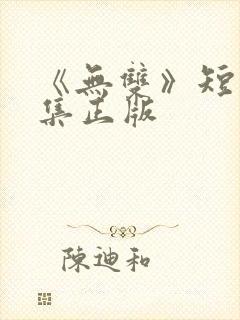 《無雙》短
集正版
陳迪和